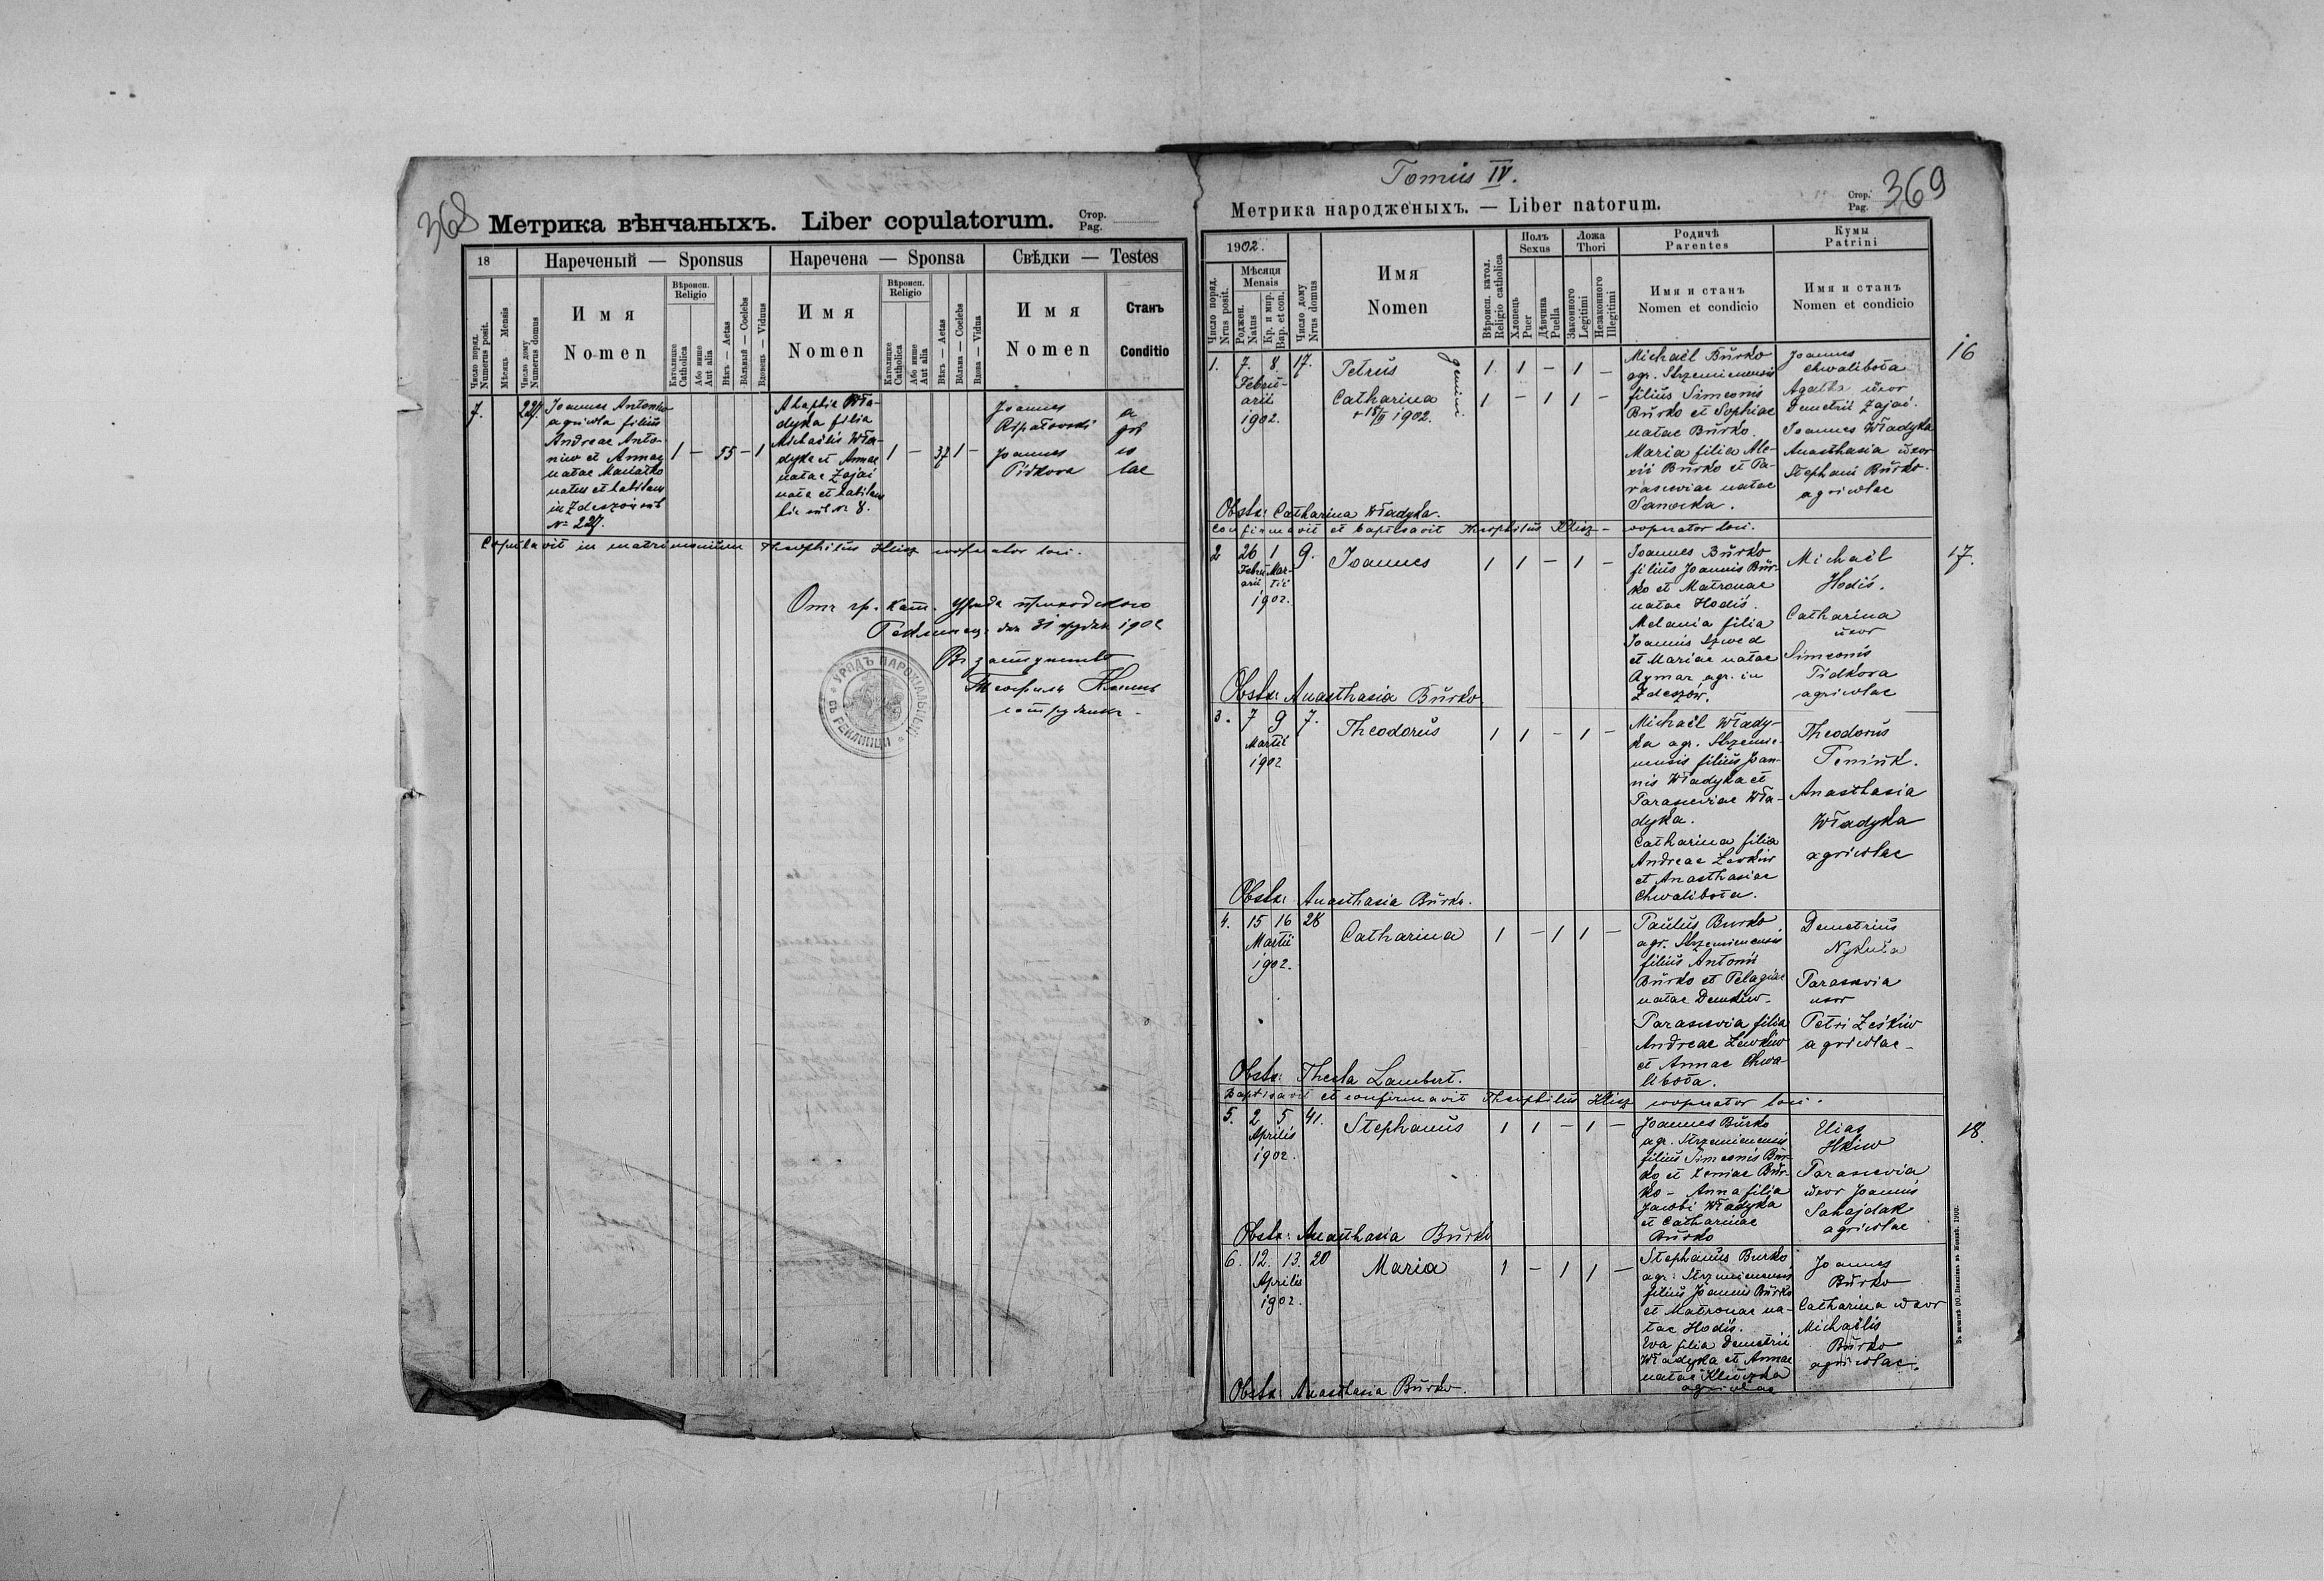 368
Метрика вѣнчаныхъ. Liber copulatorum.
Стор.
Pag.
18
Нареченый — Sponsus
Наречена — Sponsa
Свѣдки — Testes
Число поряд.
Numerus posit.
Мѣсяць Mensis
Число дому
Numerus domus
Имя
Nomen
Вѣроисп.
Religio
Католицке
Catholica
Або инше
Aut alia
Вѣкъ — Aetas
Вôльный — Coelebs
Вдовець — Viduus
Имя
Nomen
Вѣроисп.
Religio
Католицке
Catholica
Або инше
Aut alia
Вѣкъ — Aetas
Вôльна — Coelebs
Вдова — Vidua
Имя
Nomen
Станъ
Conditio
7.
227
Joannes Antoniw
agricola filius
Andreae Anto-
niw et Annae
natae
natus et habitans
in Zdeszów sub
Nr 227.
1 — 55 — 1
Ahaphia Wła-
dyka filia
Michaëlis Wła-
dyka et Annae
natae Zajać
nata et habitans
hic sub Nr 8.
1 — 37 1 —
Joannes
Joannes
Pidkova
a
gri
co
lae
Copulavit in matrimonium Theophilus Klisz cooperator loci.
Отъ гр. кат. уряда приходского
дня 31 грудня 1902
Въ заступствѣ
Теофиль
сотрудникъ
УРЯДЪ ПАРОХІАЛЬНЫЙ
Tomus IV.
369
Метрика народженыхъ. — Liber natorum.
Стор.
Pag.
1902.
Число поряд.
Nrus posit.
Мѣсяця
Mensis
Рожден.
Natus
Кр. и мир.
Bap. et con.
Число дому
Nrus domus
Имя
Nomen
Вѣроисп. катол.
Religio catholica
Полъ
Sexus
Хлопець
Puer
Дѣвчина
Puella
Ложа
Thori
Законного
Legitimi
Незаконного
Illegitimi
Родичѣ
Parentes
Имя и станъ
Nomen et condicio
Кумы
Patrini
Имя и станъ
Nomen et condicio
1. 7. 8. 17.
Febru-
arii
1902.
Petrus
Catharina
+ 18/II 1902.
gemini
1 1 — 1 —
1 — 1 1 —
Michaël Burko
agr. Strzemienensis
filius Simeonis
Burko et Sophiae
natae Burko.
Maria filia Ale-
xii Burko et Pa-
rasceviae natae
Sanocka.
Joannes
Chwalibota
Agatha uxor
Demetrii Zajać.
Joannes Władyka
Anasthasia uxor
Stephani Burko.
agricolae
16
Obstx: Catharina Władyka.
Confirmavit et baptisavit Theophilus Klisz — cooperator loci.
2 26 1 9.
Febru- Mar-
arii tii
1902.
Joannes
1 1 — 1 —
Joannes Burko
filius Joannis Bur-
ko et Matronae
natae Hodiś.
Melania filia
Joannis Szwed
et Mariae natae
Aymar agr. in
Zdeszów.
Michaël
Hodiś.
Catharina
uxor
Simeonis
Pidkova
agricolae
17.
Obstx: Anasthasia Burko
3. 7 9 7.
Martii
1902
Theodorus
1 1 — 1 —
Michaël Włady-
ka agr. Strzemie-
nensis filius Joan-
nis Władyka et
Parasceviae Wła-
dyka.
Catharina filia
Andreae Lewkiw
et Anasthasiae
Chwalibota.
Theodorus
Teniuk.
Anasthasia
Władyka
agricolae
Obstx: Anasthasia Burko.
4. 15 16 28
Martii
1902.
Catharina
1 — 1 1 —
Paulus Burko
agr. Strzemienensis
filius Antonii
Burko et Pelagiae
natae Demkiw.
Parascevia filia
Andreae Lewkiw
et Annae Chwa-
libota.
Demetrius
Nykuła
Parascevia
uxor
Petri Leśkiw
agricolae
Obstx: Thecla Lambert.
Baptisavit et confirmavit Theophilus Klisz cooperator loci.
5. 2 5 41.
Aprilis
1902.
Stephanus
1 1 — 1 —
Joannes Burko
agr. Strzemienensis
filius Simeonis Bur-
ko et Xeniae Bur-
ko — Anna filia
Jacobi Władyka
et Catharinae
Burko
Elias
Ilkiw
Parascevia
uxor Joannis
Sahajdak
agricolae
18.
Obstx: Anasthasia Burko
6. 12. 13. 20
Aprilis
1902.
Maria
1 — 1 1 —
Stephanus Burko
agr: Strzemienensis
filius Joannis Burko
et Matronae na-
tae Hodiś.
Eva filia Demetrii
Władyka et Annae
natae Kluczka
agricolae
Joannes
Burko
Catharina uxor
Michaëlis
Burko
agricolae.
Obstx: Anasthasia Burko.